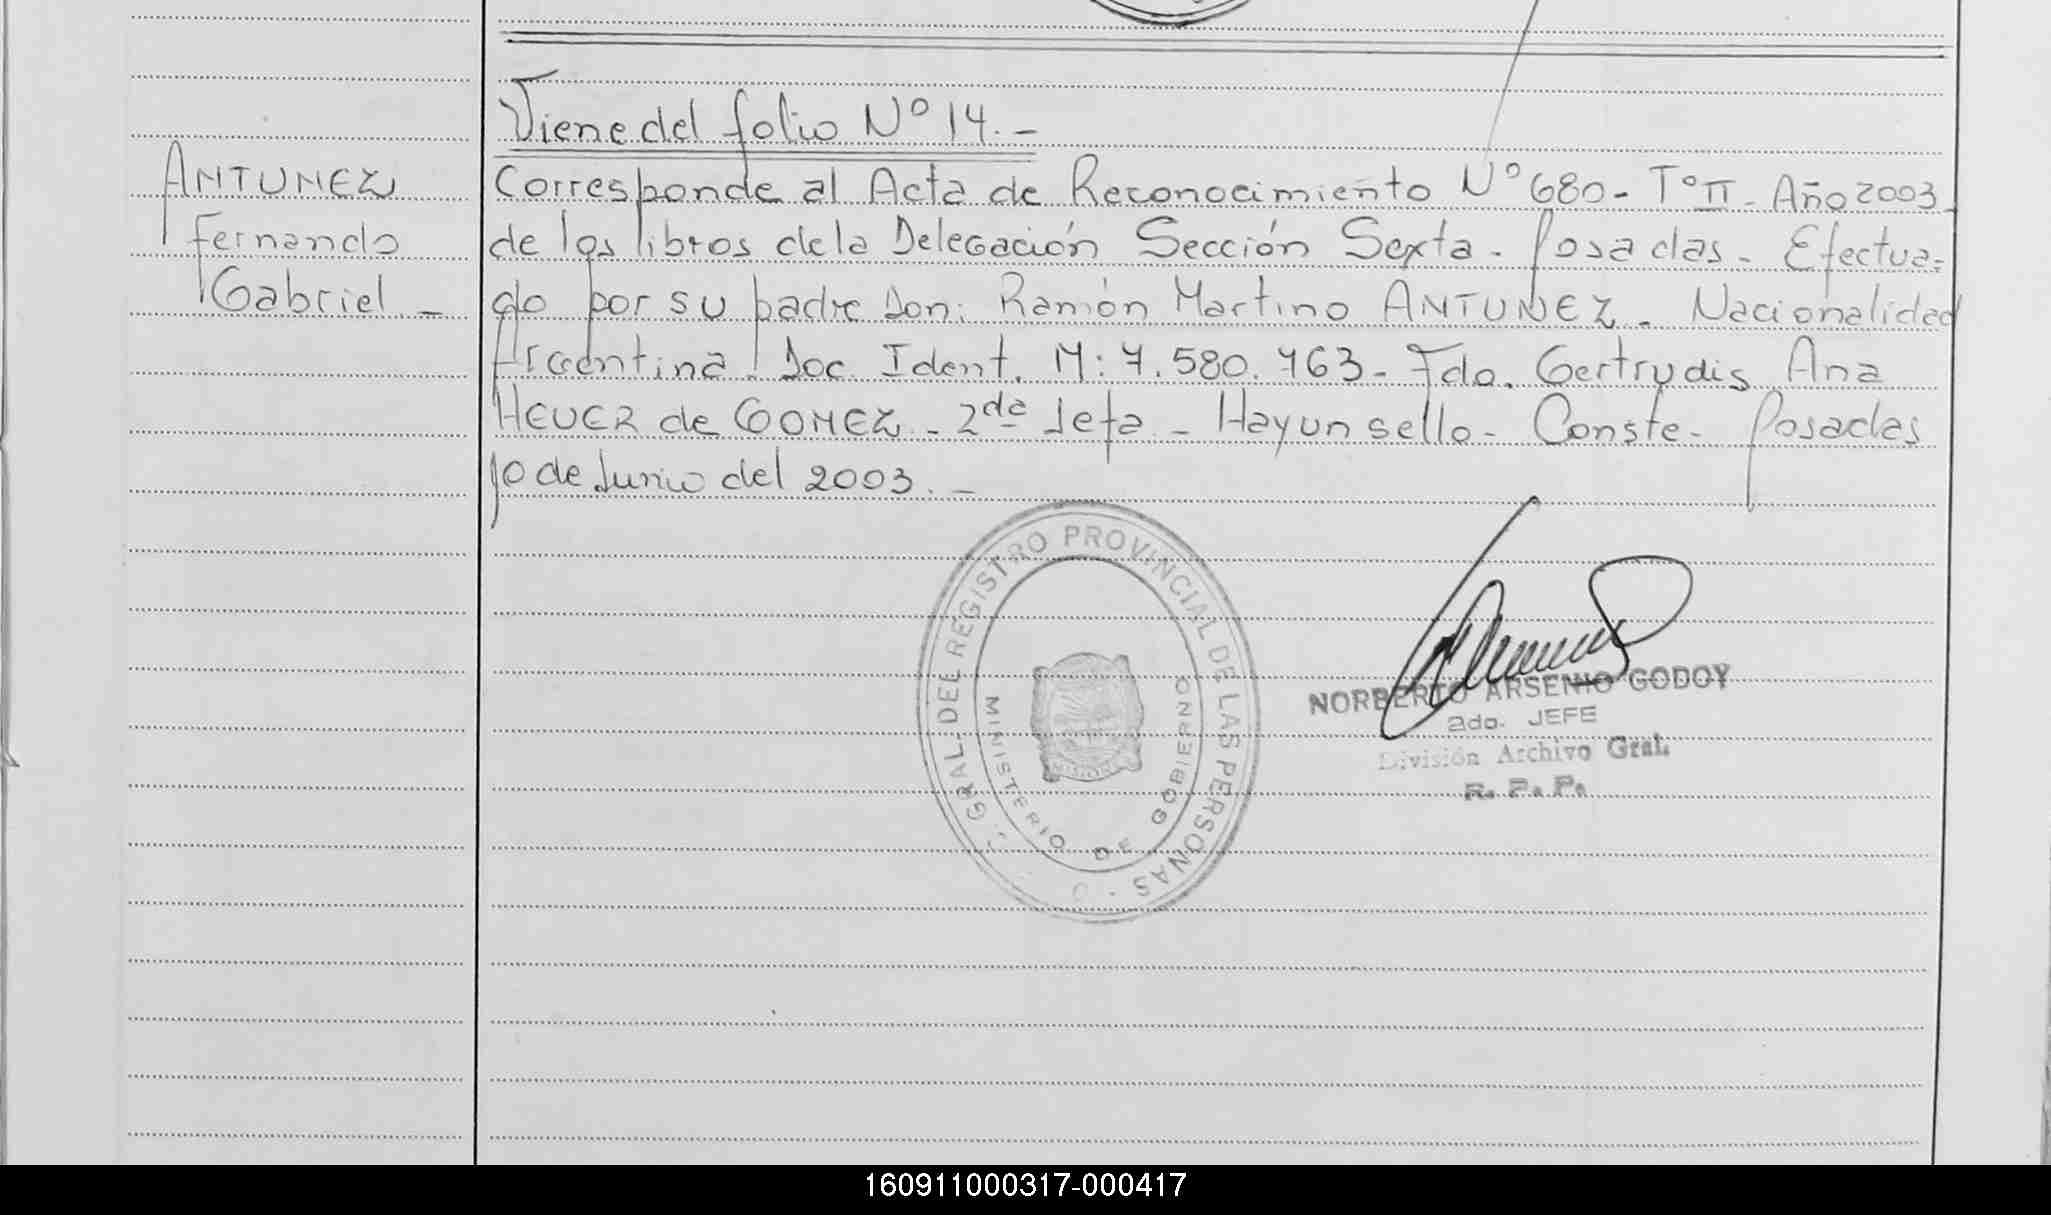 Viene del folio Nº 14.-
ANTUNEZ
Fernando
Gabriel -
Corresponde al Acta de Reconocimiento Nº 680 - Tº II - Año 2003
de los libros de la Delegación Sección Sexta - Posadas - Efectua-
do por su padre Don: Ramón Martino ANTUNEZ - Nacionalidad
Argentina - Doc. Ident. M: 7.580.763 - Fdo. Gertrudis Ana
HEUER de GOMEZ - 2da Jefa - Hay un sello - Conste - Posadas
10 de Junio del 2003. -
GRAL. DEL REGISTRO PROVINCIAL DE LAS PERSONAS
MINISTERIO DE GOBIERNO
MISIONES
NORBERTO ARSENIO GODOY
2do. JEFE
División Archivo Gral.
R. P. P.
160911000317-000417